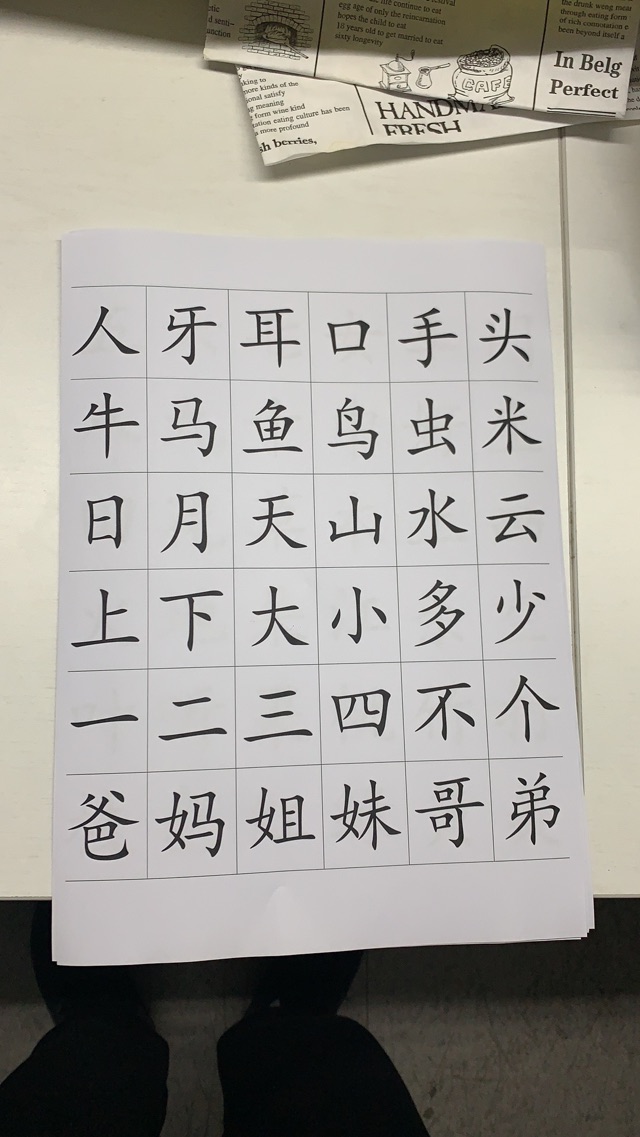 life continue to eat
egg age of only the reincarnation
hopes the child to eat
18 years old to get married to eat
sixty longevity
the drunk weng meat
through eating form
of rich connotation e
been beyond itself a
In Belg
Perfect
CAFE
more kinds of the
onal satisfy
g meaning
form wine kind
tation eating culture has been
a more profound
sh berries,
HANDMA
FRESH
人 牙 耳 口 手 头
牛 马 鱼 鸟 虫 米
日 月 天 山 水 云
上 下 大 小 多 少
一 二 三 四 不 个
爸 妈 姐 妹 哥 弟